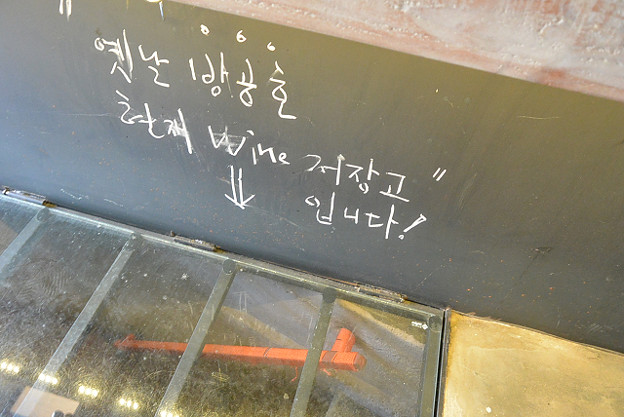 옛날 방공호
현재 Wine 저장고"
입니다!